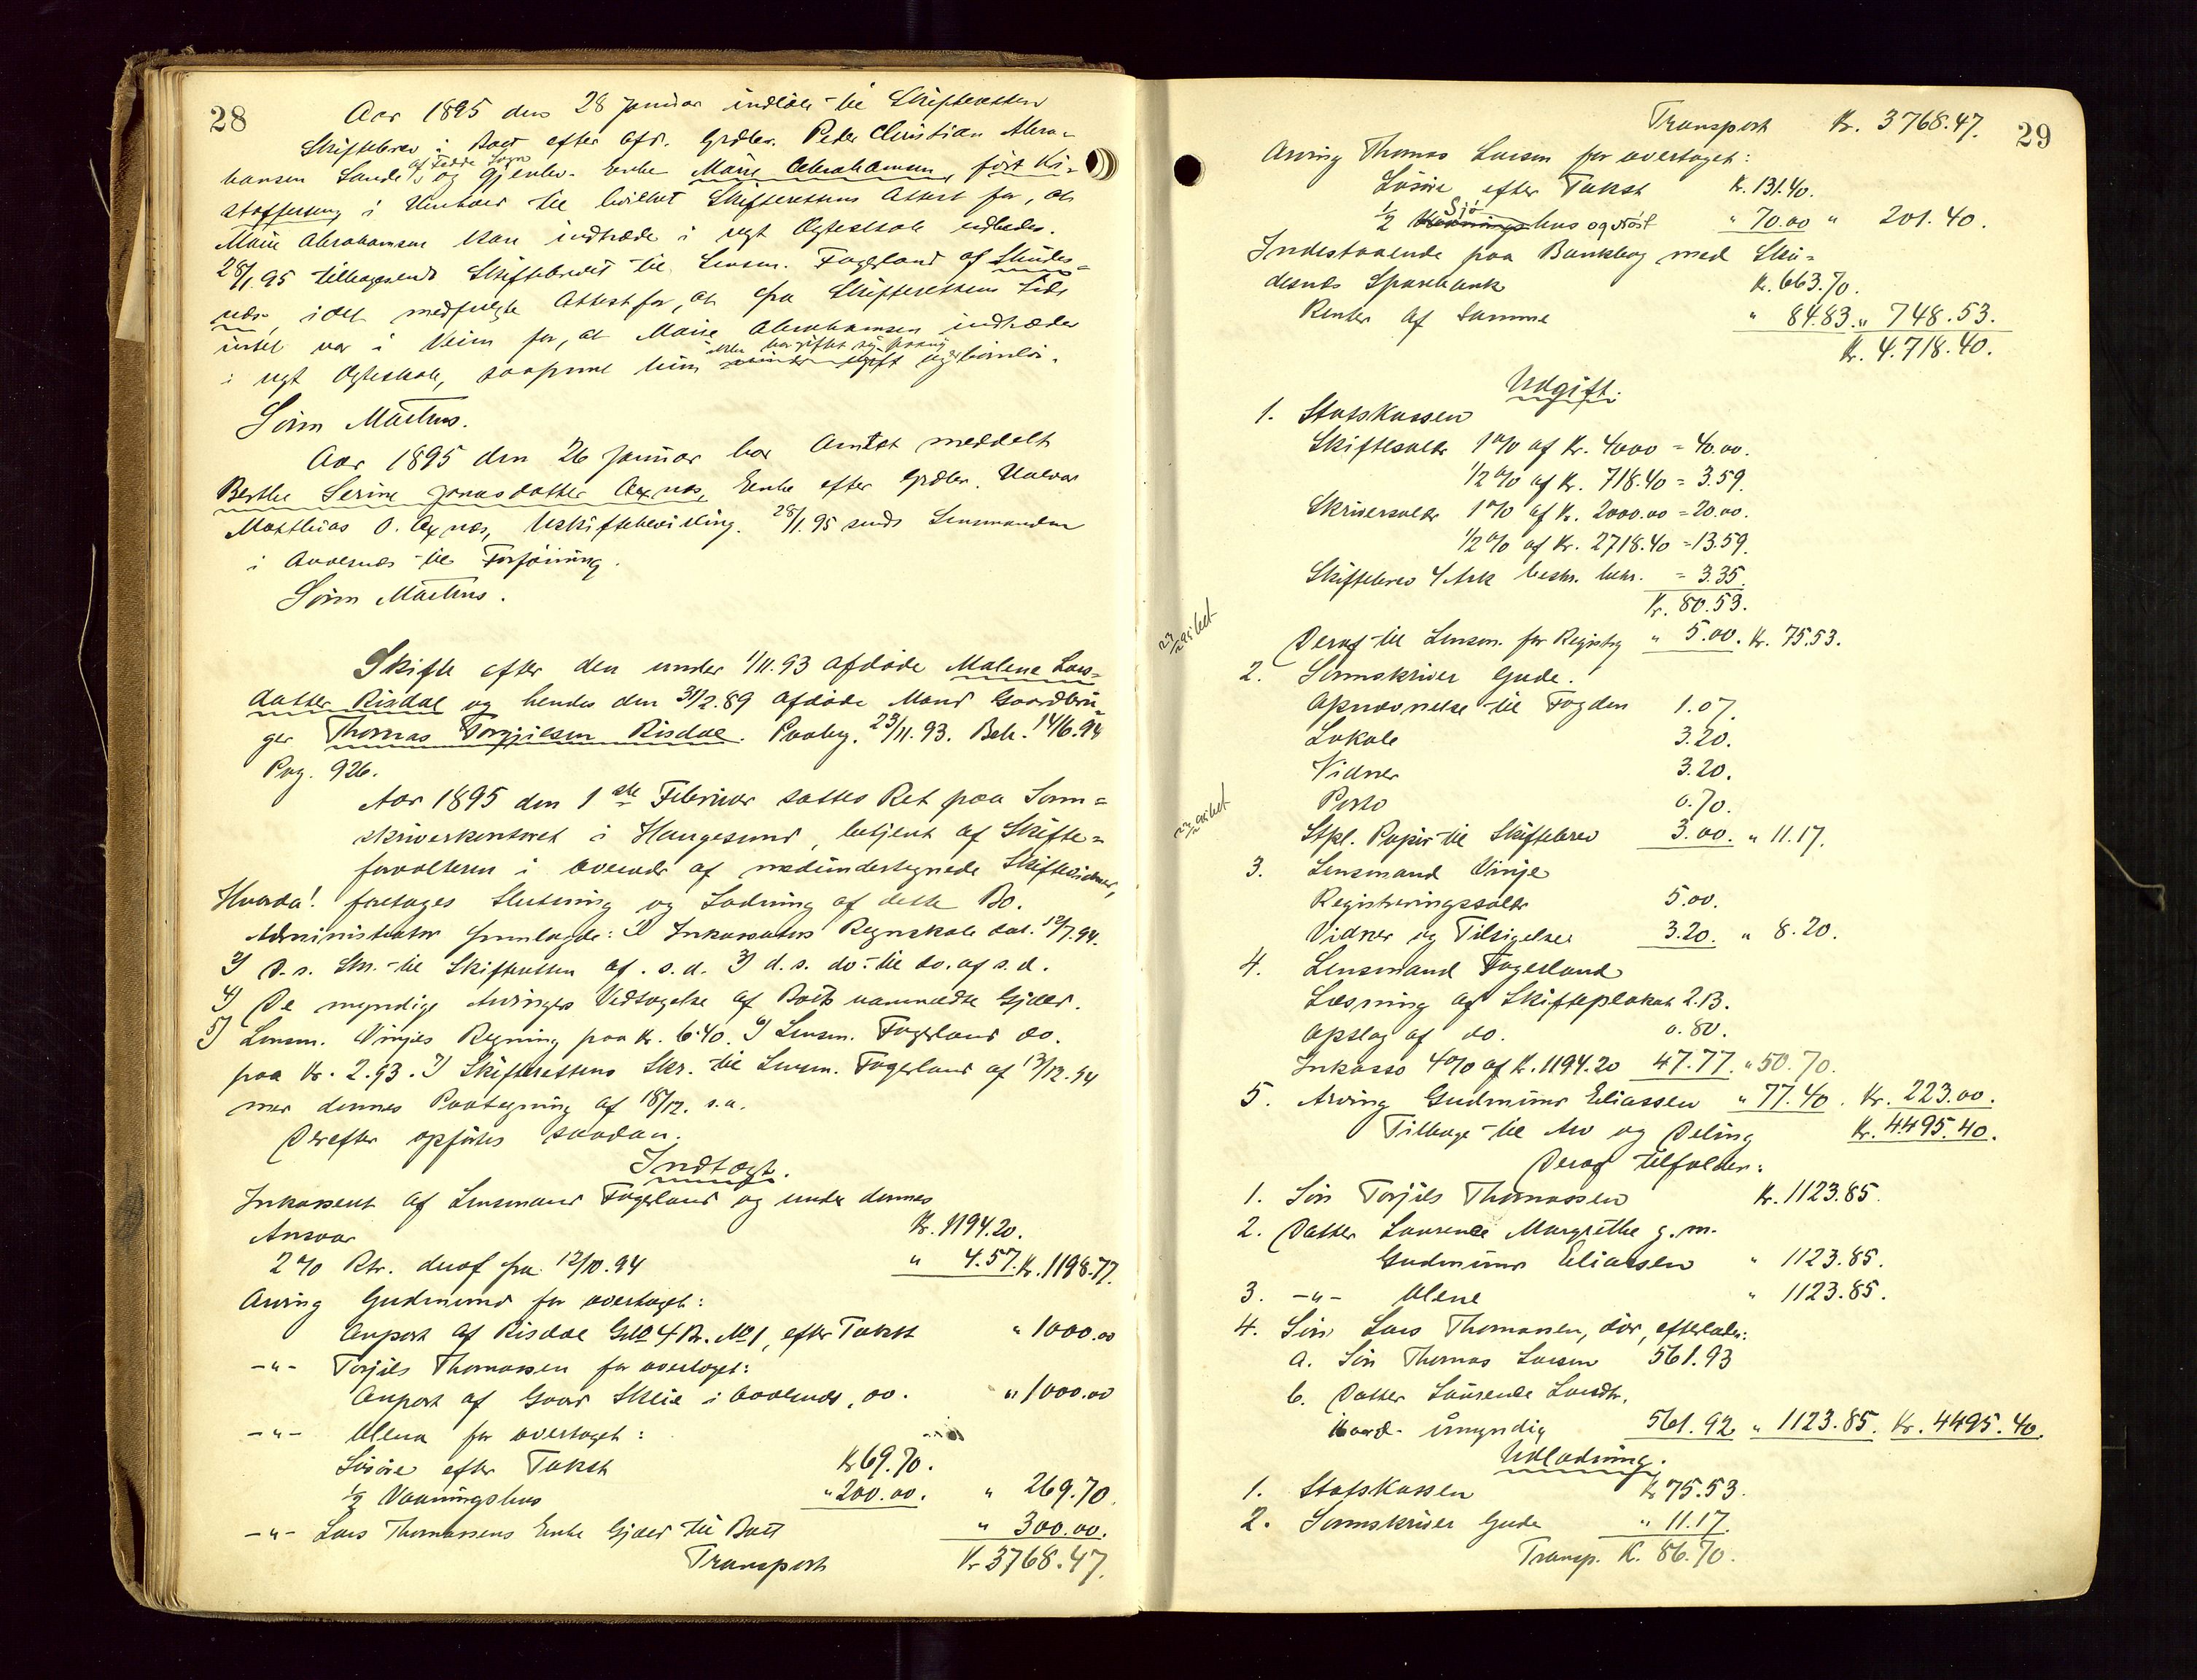 28
Aar 1895 den 28 Januar indløb til Skifteretten
Skiftebrev i Boet efter afd. Grdbr. Peter Christian Abra-
hamsen Sande af Tedde Sogn og gjenlev. Enke Marie Abrahamsen, født Kri-
stoffersen, i Henhold til hvilket Skifterettens Attest for, at
Marie Abrahamsen kan indtræde i nyt Ægteskab udbedes.
28/1.95 tilbagesendt Skiftebrevet til Lensm. Fagerland af Skudes-
næs, idet medfulgte Attest for, at fra Skifterettens Side
intet var i Veien for, at Marie Abrahamsen indtræder
i nyt Ægteskab, saafremt hun ikke har giftet sig paany og er barnløs.
Sørn Mæthus.
Aar 1895 den 26 Januar har Amtet meddelt
Berthe Serine Jonasdatter Axnæs, Enke efter Grdbr. Halvor
Matthias O. Axnæs, Uskiftebevilling. 28/1.95 sendt Lensmanden
i Avalsnæs til Forføining.
Sørn Mæthus.
Skifte efter den under 1/11.93 afdøde Malene Lars-
datter Risdal og hendes den 31/2.89 afdøde Mand Gaardbru-
ger Thomas Torgjilsen Risdal. Paabeg. 23/11.93. Beh. 14/6.94
Pag. 926.
Aar 1895 den 1ste Februar sattes Ret paa Soren-
skriverkontoret i Haugesund, betjent af Skifte-
forvalteren i Overvær af medundertegnede Skiftevidner,
Hvorda! foretoges Slutning og Lodning af dette Bo.
Administrator fremlagde: 1) Inkassators Regnskab dat. 12/7.94.
2) D. s. Skr. til Skifteretten af s. d. 3) d. s. do. til do. af s. d.
4) De myndige Arvingers Vedtagelse af Boets Gjæld.
5) Lensm. Vinjes Regning paa Kr. 6.40. 6) Lensm. Fagerland do.
paa Kr. 2.93. 7) Skifterettens Skr. til Lensm. Fagerland af 13/12.94
med dennes Paategning af 18/12. s.a.
Derefter opførtes saadan:
Indtægt.
Inkasseret af Lensmand Fagerland og under dennes
Ansvar Kr. 1194.20.
2 % Rtr. deraf fra 12/10.94 " 4.57. Kr. 1198.77.
Arving Gudmund for overtaget:
Anpart af Risdal G.No 4 Br. No 1, efter Takst " 1000.00
-"- Torjils Thomassen for overtaget:
Anpart af Gaard Skeie i Avalsnæs, do. " 1000.00
-"- Olena for overtaget:
Løsøre efter Takst Kr 69.70.
1/2 Vaaningshus " 200.00. " 269.70.
-"- Lars Thomassens Enke Gjæld til Boet " 300.00.
Transport Kr 3768.47.
29
Transport Kr. 3768.47.
Arving Thomas Larsen for overtaget:
Løsøre efter Takst Kr. 131.40.
1/2 Sjøhus og Nøst " 70.00 " 201.40.
Indestaaende paa Bankbog med Sku-
desnæs Sparebank Kr. 663.70.
Renter af samme " 84.83. " 748.53.
Kr. 4.718.40.
Udgift.
1. Statskassen
Skiftesalær 1 % af Kr. 4000 = 40.00.
1/2 % af Kr. 718.40 = 3.59.
Skriversalær 1 % af Kr. 2000.00 = 20.00.
1/2 % af Kr. 2718.40 = 13.59.
Skiftebrev 4 Ark beskr. bekr. = 3.35.
Kr. 80.53.
Deraf til Lensm. for Registrg " 5.00. Kr. 75.53.
2. Sorenskriver Gude.
Opnævnelse til Fogden 1.07.
Lokale 3.20.
Vidner 3.20.
Porto 0.70.
Stpl. Papir til Skiftebrev 3.00. " 11.17.
3. Lensmand Vinje
Registreringssalær 5.00.
Vidner og Tilsigelser 3.20. " 8.20.
4. Lensmand Fagerland
Læsning af Skifteplakat 2.13.
Opslag af do. 0.80.
Inkasso 4 % af Kr. 1194.20 47.77. " 50.70.
5. Arving Gudmund Eliassen " 77.40. Kr. 223.00.
Tilbage til Arv og Deling Kr. 4495.40.
Deraf tilfalder:
1. Søn Torjils Thomassen Kr. 1123.85.
2. Datter Laurence Margrethe g. m.
Gudmund Eliassen " 1123.85.
3. -"- Olene " 1123.85.
4. Søn Lars Thomassen, død, efterlader:
a. Søn Thomas Larsen 561.93
b. Datter Laurense Larsdtr.
umyndig 561.92 " 1123.85. Kr. 4495.40.
Udlodning.
1. Statskassen Kr 75.53.
2. Sorenskriver Gude " 11.17.
Transp. K. 86.70.